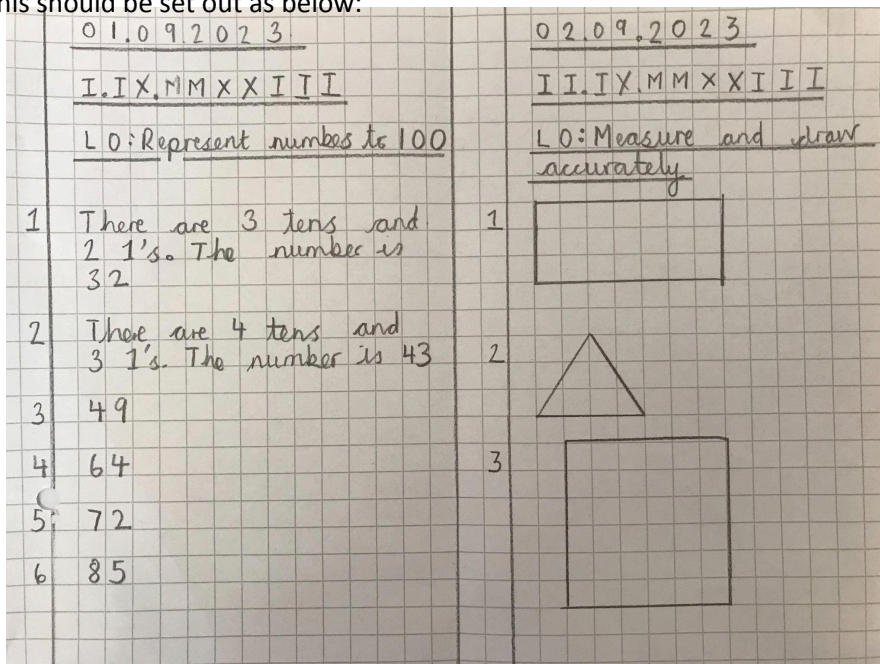 his should be set out as below:
01.09.2023
I.IX.MMXXIII
LO: Represent numbes to 100
1 There are 3 tens and
2 1's. The number is
32
2 There are 4 tens and
3 1's. The number is 43
3 49
4 64
5 72
6 85
02.09.2023
II.IX.MMXXIII
LO: Measure and draw
accurately
1
2
3